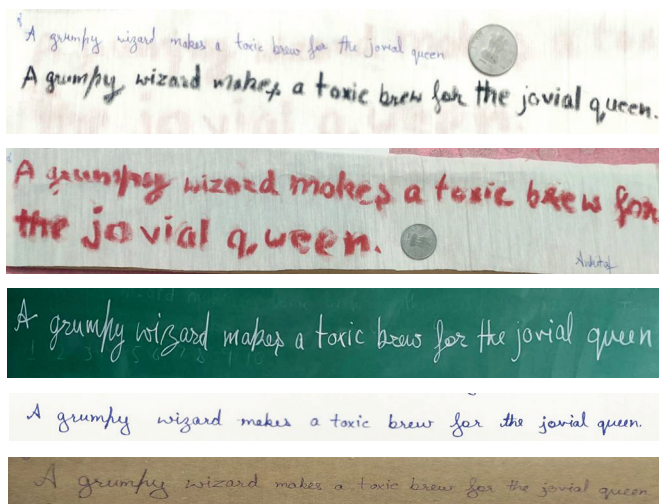 A grumpy wizard makes a toxic brew for the jovial queen
A grumpy wizard makes a toxic brew for the jovial queen.
A grumpy wizard makes a toxic brew for
the jovial queen.
A grumpy wizard makes a toxic brew for the jovial queen
A grumpy wizard makes a toxic brew for the jovial queen.
A grumpy wizard makes a toxic brew for the jovial queen